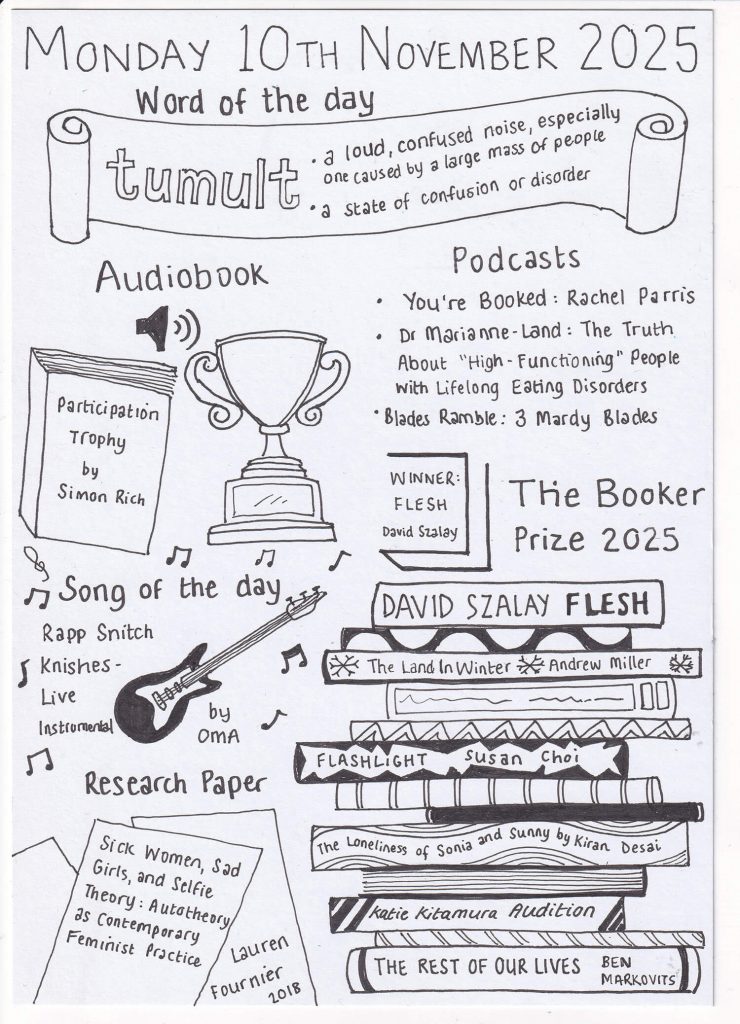 MONDAY 10TH NOVEMBER 2025
Word of the day
tumult
• a loud, confused noise, especially
one caused by a large mass of people
• a state of confusion or disorder
Audiobook
Participation
Trophy
by
Simon Rich
Podcasts
• You're Booked: Rachel Parris
• Dr Marianne-Land: The Truth
About "High-Functioning" People
with Lifelong Eating Disorders
• Blades Ramble: 3 Mardy Blades
WINNER:
FLESH
David Szalay
The Booker
Prize 2025
Song of the day
Rapp Snitch
Knishes-
Live
Instrumental
by
OMA
DAVID SZALAY FLESH
The Land In Winter Andrew Miller
FLASHLIGHT Susan Choi
The Loneliness of Sonia and Sunny by Kiran Desai
Katie Kitamura Audition
THE REST OF OUR LIVES BEN
MARKOVITS
Research Paper
Sick Women, Sad
Girls, and Selfie
Theory: Autotheory
as Contemporary
Feminist Practice
Lauren
Fournier
2018